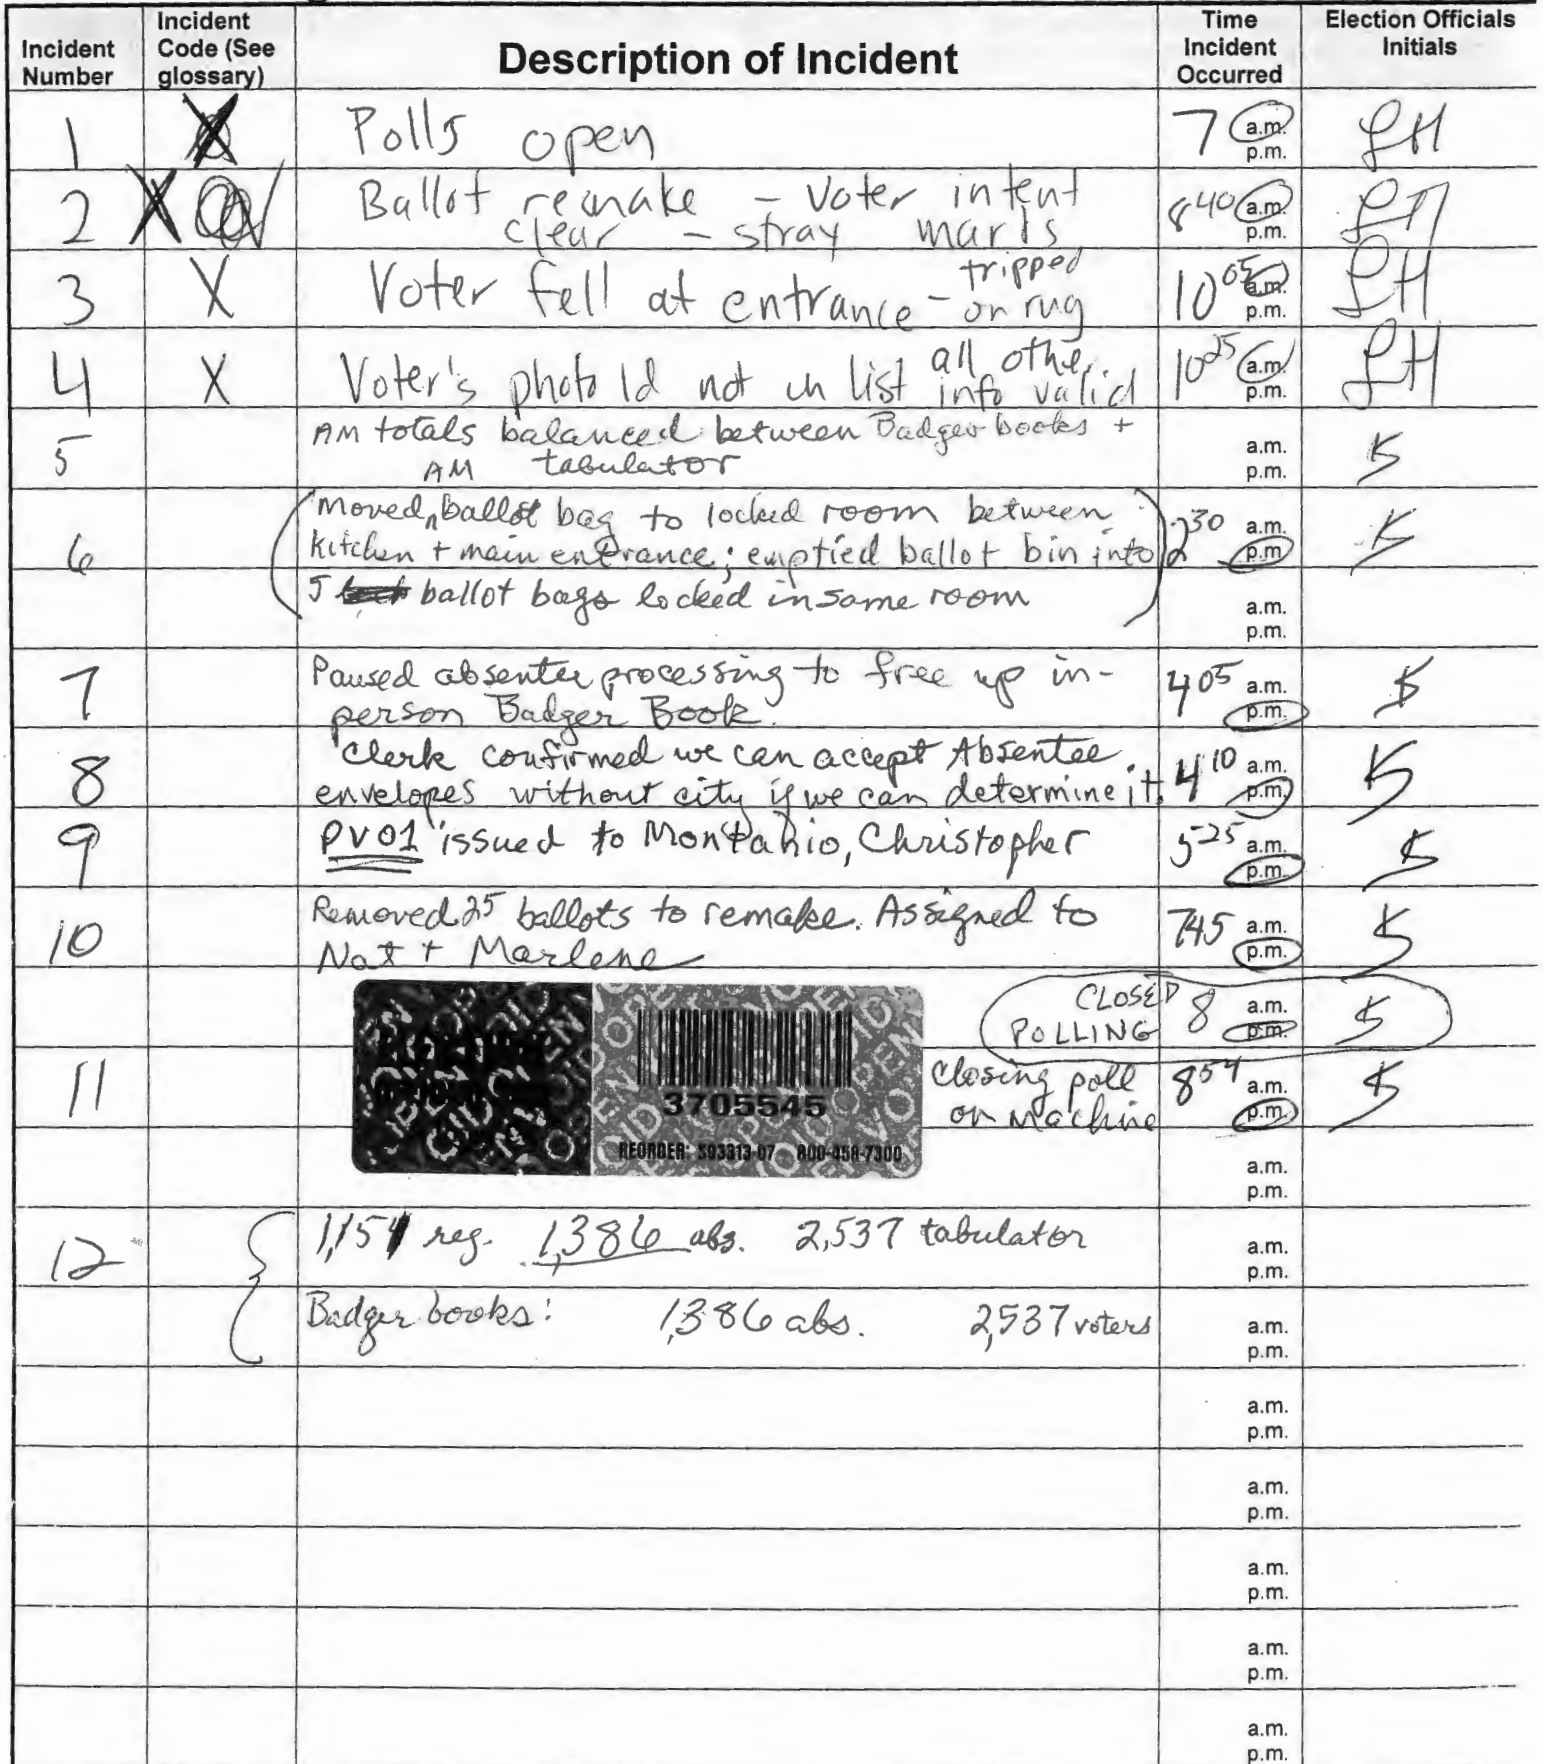 Incident Number
Incident Code (See glossary)
Description of Incident
Time Incident Occurred
Election Officials Initials
1 X Polls open 7 a.m. p.m. LH
2 X Ballot remake - voter intent 8 40 a.m. p.m. LH
clear - stray marks
3 X Voter fell at entrance - tripped on rug 10 05 a.m. p.m. LH
4 X Voter's photo Id not in list all other info valid 10 25 a.m. p.m. LH
5 AM totals balanced between Badger books + a.m. p.m.
AM tabulator
6 Moved ballot bag to locked room between 2 30 a.m. p.m.
kitchen + main entrance; emptied ballot bin into
5 ballot bags locked in same room a.m. p.m.
7 Paused absentee processing to free up in- 4 05 a.m. p.m.
person Badger Book.
8 Clerk confirmed we can accept Absentee 4 10 a.m. p.m.
envelopes without city if we can determine it.
9 PV01 issued to Christopher 5 25 a.m. p.m.
10 Removed 25 ballots to remake. Assigned to 7 45 a.m. p.m.
Nat + Marlene
CLOSED 8 a.m. p.m.
POLLING
11 Closing poll 8 54 a.m. p.m.
on Machine
3705545
REORDER: 503313-07 800-458-7300
a.m. p.m.
12 reg. 1,386 abs. 2,537 tabulator a.m. p.m.
Badger books: 1,386 abs. 2,537 voters a.m. p.m.
a.m. p.m.
a.m. p.m.
a.m. p.m.
a.m. p.m.
a.m. p.m.